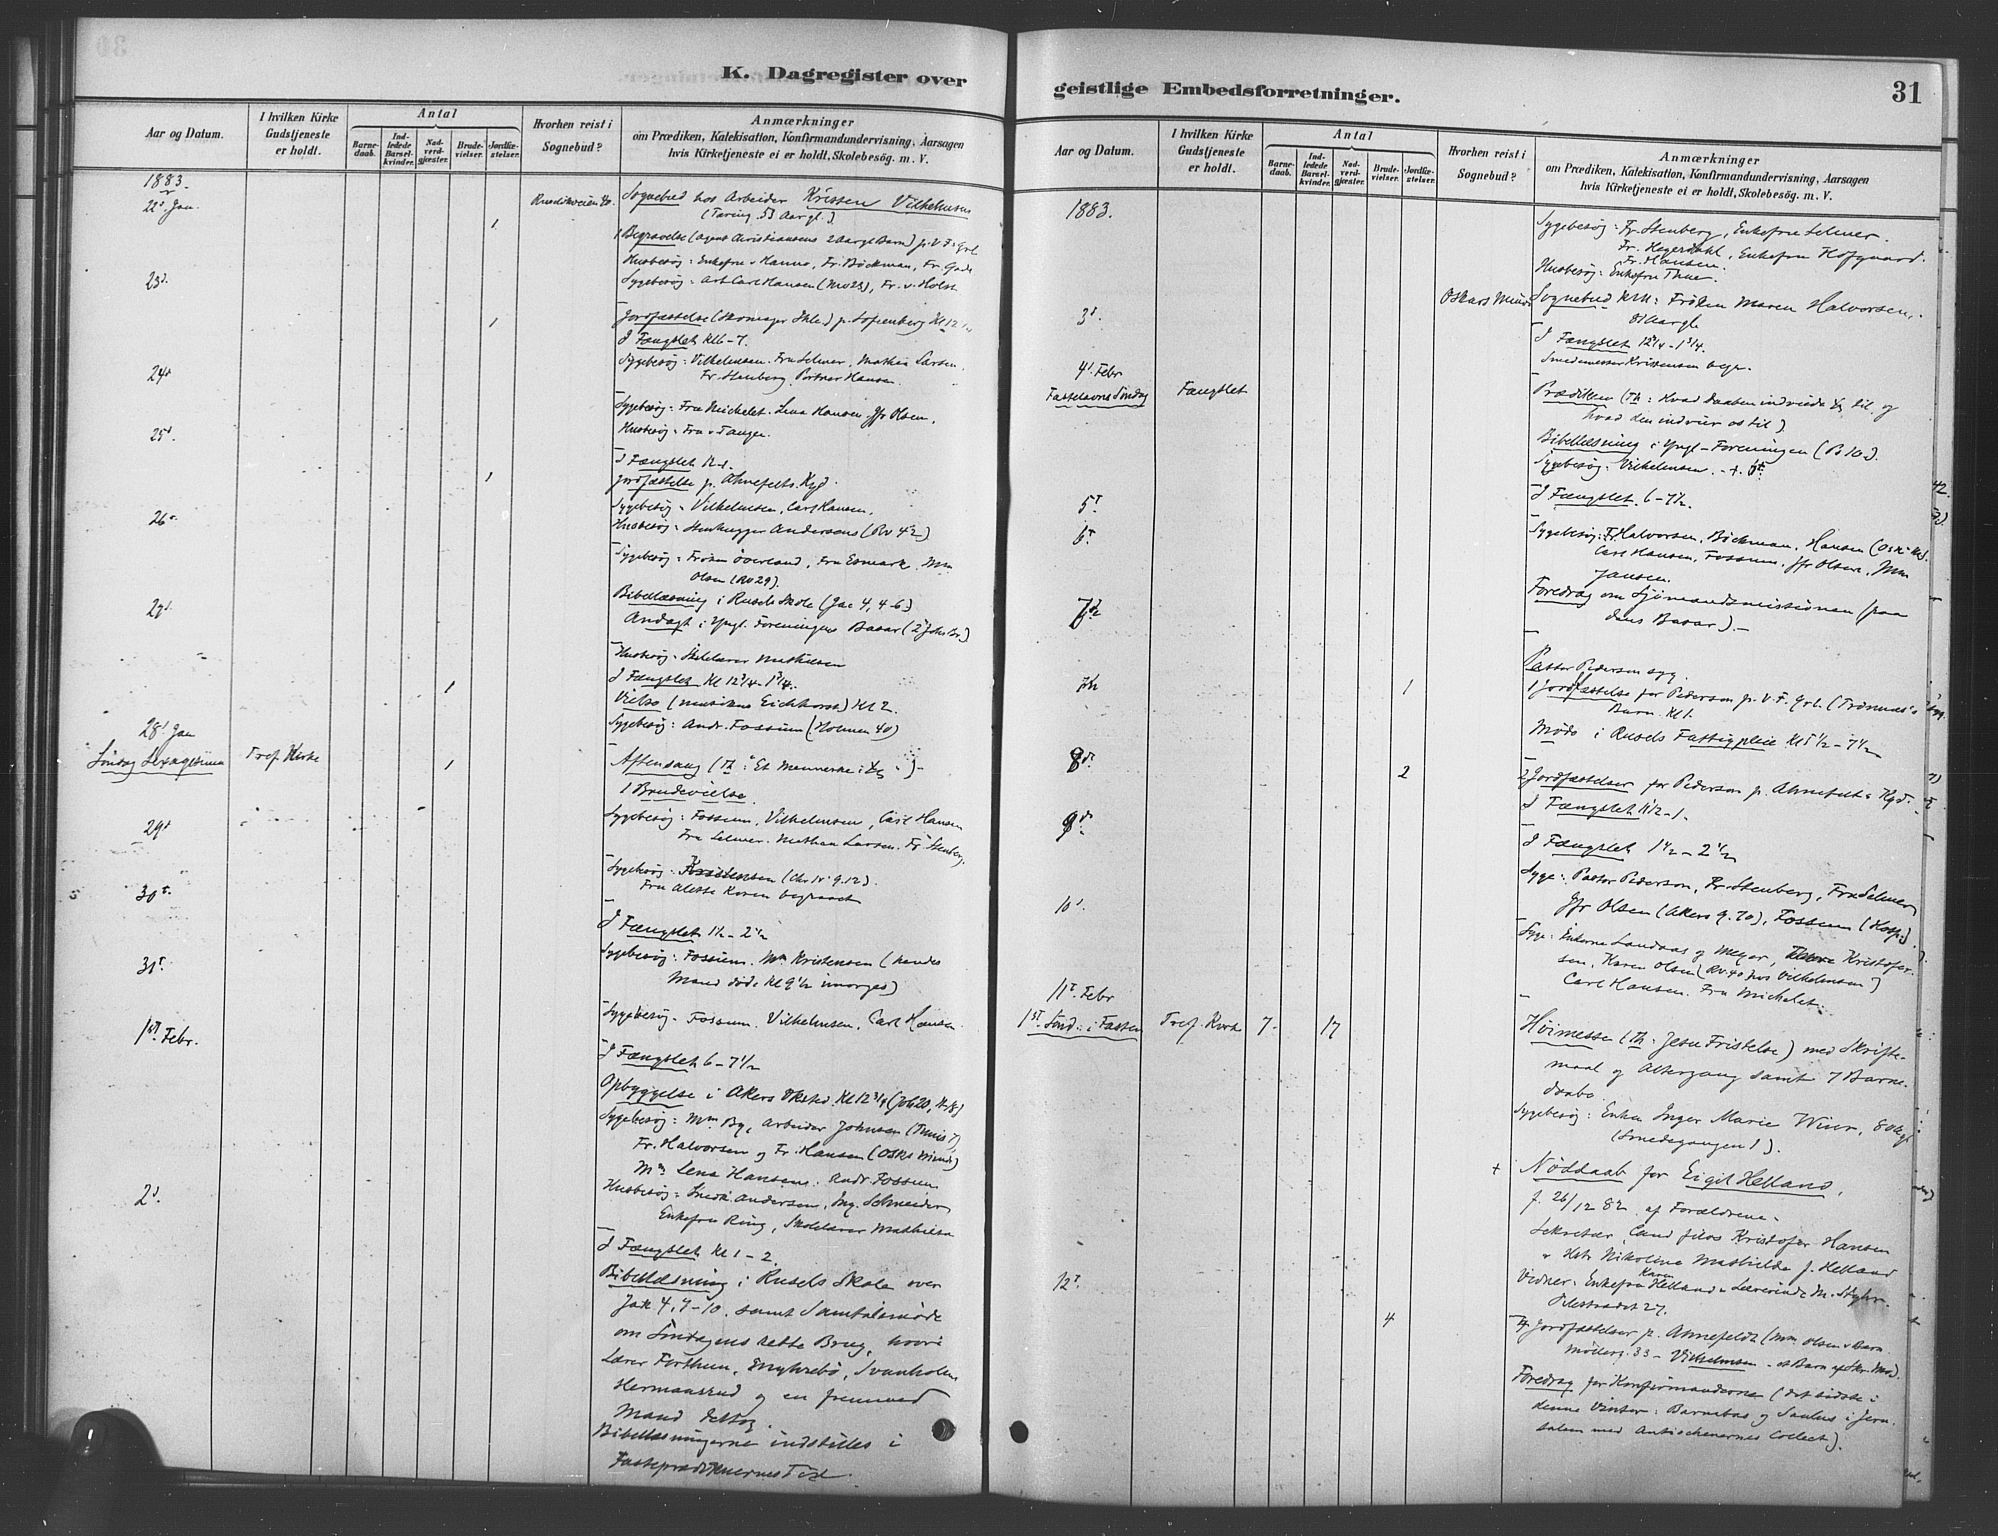 K. Dagregister over
Aar og Datum.
I hvilken Kirke
Gudstjeneste
er holdt.
Antal
Barne-
daab.
Ind-
ledede
Barsel-
kvinder.
Nad-
verd-
gjæster.
Brude-
vielser.
Jordfæ-
stelser.
Hvorhen reist i
Sognebud?
Anmærkninger
om Prædiken, Katekisation, Konfirmandundervisning, Aarsagen
hvis Kirketjeneste ei er holdt, Skolebesög. m. V.
1883
22d Jan.
Sognebud hos Arbeider Kristen Vilhelmsen
1
1 Begravelse (Agent Christiansens 2 Aargl. Barn) p. V. F. Grl
Husbesøg: Enkefru v Hanno, Fr. Bøckman, Fr. Gade
23d.
Sygebesøg: Carl Hansen (Mo 23), Fr. v. Holst
1
Jordfæstelse (Skomager Ihle) p. Sofienberg Kl 12 1/2
I Fængslet Kl 6-7.
24d
Sygebesøg: Vilhelmsen. Fru Selmer, Mathia Larsen,
Fr. Stenberg. Portner Hansen.
Sygebesøg: Fru Michelet. Lena Hansen, Jfr Olsen.
25d.
Husbesøg: Fru v Tangen.
I Fængslet 12-1.
1
Jordfæstelse p. Ahnefelts Kgd.
Sygebesøg: Vilhelmsen, Carl Hansen.
26
Husbesøg: Stenhugger Andersens (Rv 42)
Sygebesøg: Frøken Överland, Fru Esmark, Mm
Olsen (Rv 29).
27d.
Bibellæsning i Rusels Skole (Jac 4, 4-6.)
Andagt i Yngl. Foreningens Basar (2 Joh. Br.)
Husbesøg: Skolelærer Mathisen
1
I Fængslet Kl 12 3/4-1 3/4.
Vielse (Musikus Eichhorst) Kl 2.
28d Jan
Sygebesøg: Andr. Fossum (Holmen 40)
Söndag Sexagesima
Tref. Kirke
1
Aftensang (Th: "Et Menneske i )-
1 Brudevielse.
29d
Sygebesøg: Fossum, Vilhelmsen, Carl Hansen
Fru Selmer. Mathea Larsen. Fr. Stenberg.
Sygebesøg: Kristensen (Chr IV g. 12).
30t.
Fru Alette Koren begravet
I Fængslet 1 1/2 - 2 1/2
31t
Sygebesøg: Fossum. Mm Kristensen (hendes
Mand døde Kl 9 1/2 imorges)
Sygebesøg: Fossum. Vilhelmsen. Carl Hansen.
1st Febr.
I Fængslet 6 - 7 1/2
Opbyggelse i Akers Kl 12 3/4 (Joh 20, 11-18)
Sygebesøg: Mm By, Arbeider Johnsen
Fr. Halvorsen og Fr. Hansen (Osks Minde)
Mm Lena Hansen. Andr. Fossum
2d.
Husbesøg: Smed. Andersen, Ing. Schneider
Enkefru Ring, Skolelærer Mathisen
I Fængslet Kl 1 - 2.
Bibellæsning i Rusels Skole over
Jak 4, 7-10. samt Samtalemøde
om Söndagens rette Brug, hvori
Lærer Forthun, Myhrebö, Svanholm,
Hermansrud og en fremmed
Mand deltog.
Bibellæsningerne indstilles i
Fasteprædikenernes Tid.
geistlige Embedsforretninger.
31
Aar og Datum.
I hvilken Kirke
Gudstjeneste
er holdt.
Antal
Barne-
daab.
Ind-
ledede
Barsel-
kvinder.
Nad-
verd-
gjæster.
Brude-
vielser.
Jordfæ-
stelser.
Hvorhen reist i
Sognebud?
Anmærkninger
om Prædiken, Katekisation, Konfirmandundervisning, Aarsagen
hvis Kirketjeneste ei er holdt, Skolebesög. m. V.
1883.
Sygebesøg: Fr. Stenberg, Enkefru Selmer.
Fr. Hegerdahl, Enkefru Hofgaard.
Fr. Hansen.
Husbesøg: Enkefru Thue.
3d.
Oskars Minde
Sognebud Kl 11: Frøken Maren Halvorsen,
81 Aargl.
I Fængslet 12 3/4 - 1 3/4.
4d. Febr
Smedemester Kristensen begr.
Fastelavns Söndag
Fængslet
Prædiken (Th: Hvad Daaben indviede til, og
hvad den indvier os til)
Bibellæsning i Yngl-Foreningen
Sygebesøg: Vilhelmsen. - +
5t
I Fængslet. 6 - 7 1/2.
6t.
Sygebesøg: Fr Halvorsen, Bøckman, Hansen
Carl Hansen, Fossum, Jfr Olsen, Mm
Jansen.
7de
Foredrag om Sjömandsmissionen (paa
dens Basar). -
Pastor Pederson syg.
1
1 Jordfæstelse for Pederson p. V. F. Grl.
Barn. Kl 1.
Möde i Rusels Fattigpleie Kl 5 1/2 - 7 1/2
8d.
2
2 Jordfæstelser for Pederson p. Ahnefelts Kgd.
I Fængslet 11 1/2 - 1.
9d.
I Fængslet 1 1/2 - 2 1/2
Syge: Pastor Pederson, Fr. Stenberg, Fru Selmer,
10d.
Jfr Olsen (Akers g. 70), Fossum (Hosp.).
Syge: Enkerne Landaas og Meyer, Kristofer-
sen, Karen Olsen (Rv. 40 hos Vilhelmsen)
11t. Febr
Carl Hansen. Fru Michelet.
1st Sönd: i Fasten
Tref. Kirke
7
17
Höimesse (Th: Jesu Fristelse) med Skrifte-
maal og Altergang samt 7 Barne-
daabe.
Sygebesøg: Enke Inger Marie Wiur, 80 Agl.
(Smedegangen 1).
+ Nöddaab for Eigil Helland,
f. 26/12 82. af Forældrene.
Sekretær, Cand filos Kristofer Hansen
v Hstr. Nikoline Mathilde f. Helland
12t.
Vidner: Enkefru Karen Helland v Lærerinde M. Styhr.
Pilestrædet 27.
4
4 Jordfæstelser p. Ahnefeldt (Mm Olsen v Barn
Mölderg. 33 - Vilhelmsen - et Barn
Foredrag for Konfirmanderne (det sidste i
denne Vinter: Barnabas og Saulus i Jeru-
salem med Antiochenernes Collect).